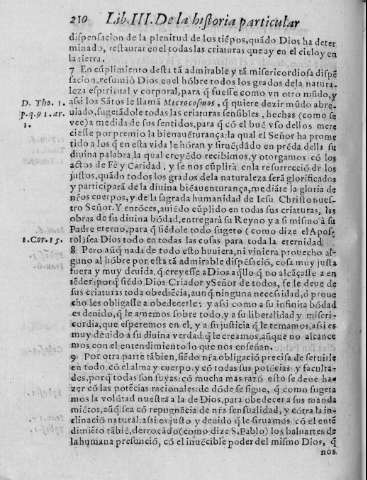 210 Lib. III. De la historia particular
dispensacion de la plenitud de los tiẽpos, quãdo Dios ha deter
minado, restaurar en el todas las criaturas que ay en el cielo y en
la tierra.
7 En cũplimiento desta tã admirable y tã misericordiosa dispẽ
sacion, resumio Dios en el hõbre todos los grados de la natura
leza espiritual y corporal, para q̃ fuesse como vn otro mũdo, y
D. Tho. 1. assi los Sãtos le llamã Macrocosmos, q̃ quiere dezir mũdo abre-
p. q. 91. ar. uiado, sugetãdole todas las criaturas sensibles, hechas (como se
1. vee) a medida de sus sentidos, para q̃ cõ el bue vso dellos mere
ciesse por premio la bienauẽturança: la qual el Señor ha prome
tido a los q̃ en esta vida le hõran y siruẽ, dãdo en prẽda della su
diuina palabra la qual creyẽdo recibimos, y otorgamos cõ los
actos de Fè y Caridad, y se nos cũplirà en la resurrecciõ de los
justos, quãdo todos los grados de la naturaleza serã glorificados
y participarã de la diuina biẽauenturança, mediãte la gloria de
nr̃os cuerpos, y de la sagrada humanidad de Iesu Christo nues-
tro Señor. Y entõces, auiẽdo cũplido en todas sus criaturas, las
obras de su diuina bõdad, entregarà su Reyno y a si mismo a su
Padre eterno, para q̃ siẽdole todo sugeto (como dize el Apos
1. Cor. 15. tol) sea Dios todo en todas las cosas para toda la eternidad.
8 Pero aũq̃ nada de todo esto huuiera, ni viniera prouecho al-
guno al hõbre por esta tã admirable disposiciõ, cosa muy justa
fuera y muy deuida, q̃ creyesse a Dios aq̃llo q̃ no alcãçasse a en
tẽder: porq̃ siẽdo Dios Criador y Señor de todos, se le deue de
sus criaturas toda obediẽcia, aunq̃ ninguna necessidad, ò proue
cho les obligasse a obedecerle: y assi como a su infinita bõdad
es deuido, q̃ le amemos sobre todo, y a su liberalidad y miseri-
cordia, que esperemos en el, y a su justicia q̃ le temamos, assi es
muy deuido a su diuina verdad q̃ le creamos, aũque no alcance
mos con el entendimiento lo que nos enseñan.
9 Por otra parte tãbien, siẽdo nr̃a obligaciõ precisa de seruirle
en todo, cõ el alma y cuerpo, y cõ todas sus potẽcias y faculta-
des, porq̃ todas son suyas: cõ mucha mas razõ esto se deue ha-
zer cõ las potẽcias racionales: de dõde se sigue, q̃ como sugeta
mos la volũtad nuestra a la de Dios, para obedecer a sus manda
miẽtos, aũq̃ sea cõ repugnãcia de nr̃a sensualidad, y cõtra la in-
clinaciõ natural: assi es justo y deuido q̃ le siruamos cõ el entẽ
dimiẽto tãbiẽ, derrocãdo (como dize S. Pablo) los baluartes de
la humana presunciõ, cõ el inuẽcible poder del mismo Dios, q̃
nos